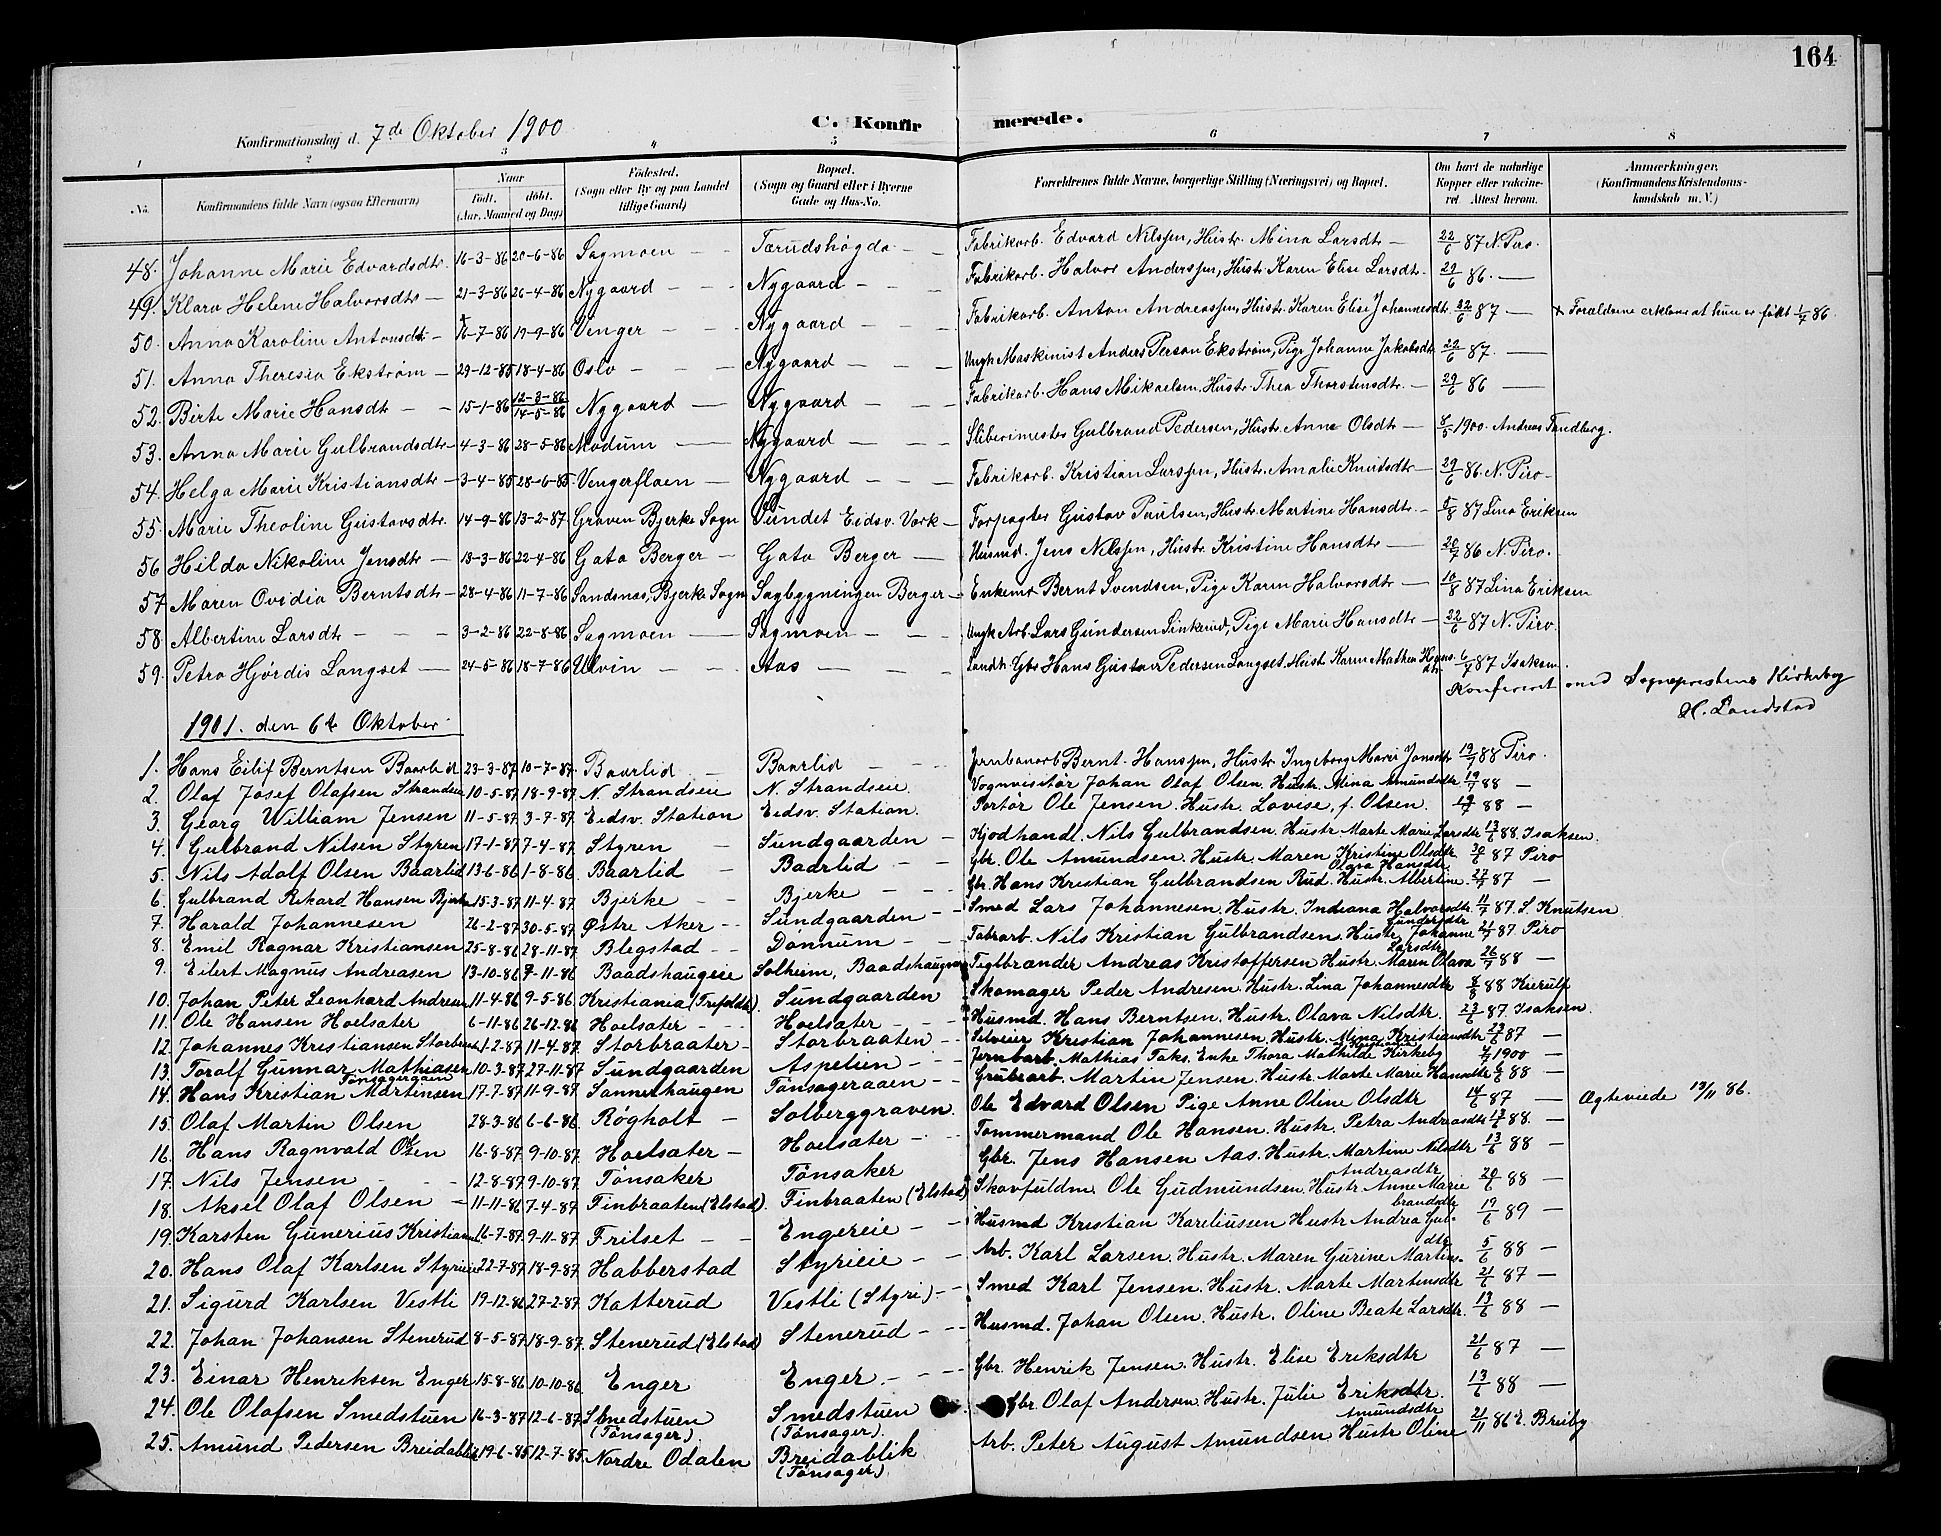 164
Konfirmationsdag d. 7de Oktober 1900
C. Konfirmerede.
1 2 3 4 5 6 7 8
No. Konfirmandens fulde Navn (ogsaa Efternavn) Naar født. døbt. (Aar, Maaned og Dag) Fødested. (Sogn eller By og paa Landet tillige Gaard) Bopæl. (Sogn og Gaard eller i Byerne Gade og Hus-No. Forældrenes fulde Navne, borgerlige Stilling (Næringsvei) og Bopæl. Om havt de naturlige Kopper eller vakcineret Attest herom. Anmærkninger. (Konfirmandens Kristendomskundskab m. V.)
48. Johanne Marie Edvardsdtr. 16-3-86 20-6-86 Sagmoen — Tærudshøgda — Fabrikarb. Edvard Nilssen, Hustr. Mina Larsdtr — 22/6 87 N. Piro.
49. Klara Helene Halvorsdtr — 21-3-86 26-4-86 Nygaard — Nygaard — Fabrikarb. Halvor Anderssen, Hustr. Karen Elise Larsdtr. 29/6 86. —
50. Anna Karoline Antonsdtr — + 16-7-86 19-9-86 Venger — Nygaard — Fabrikarb. Anton Andreassen, Hustr. Karen Elise Johannesdtr. 22/6 87 — + Forældrene erklære at hun er født 1/7 86.
51. Anna Theresia Ekstrøm — 29-12-85 18-4-86 Oslo — Nygaard — Ungk Maskinist Anders Person Ekstrøm, Pige Johanne Jakobsdtr 22/6 87. —
52. Birte Marie Hansdtr — 15-1-86 12-3-86 14-5-86 Nygaard — Nygaard — Fabrikarb. Hans Mikaelsen, Hustr. Thea Thorstensdtr. — 29/6 86 —
53. Anna Marie Gulbrandsdtr — 4-3-86 28-5-86 Modum — Nygaard — Sliberimester Gulbrand Pedersen, Hustr. Anne Olsdtr — 1900. Andreas Tandberg.
54. Helga Marie Kristiansdtr — 3-4-85 28-6-85 Vengerfloen — Nygaard — Fabrikarb. Kristian Larssen, Hustr. Amalie Knutsdtr — 29/6 86. N. Piro —
55. Marie Theoline Gustavsdtr. 14-9-86 13-2-87 Graven Bjerke Sogn Sundet Eidsv. Værk — Forpagter Gustav Paulsen, Hustr. Martine Hansdtr. — 5/8 87 Lina Eriksen
56 Hilda Nikoline Jensdtr — 13-3-86 22-4-86 Gata Berger — Gata Berger — Husmd. Jens Nilssen, Hustr. Kristine Hansdtr — 20/7 86 N. Piro.
57. Maren Ovidia Berntsdtr — 28-4-86 11-7-86 Sandsnæs, Bjerke Sogn Sagbygningen Berger — Enkemd Bernt Svendsen, Pige Karen Halvorsdtr — 10/8 87 Lina Eriksen
58 Albertine Larsdtr — 3-2-86 22-8-86 Sagmoen — Sagmoen — Ungk Arb. Lars Gundersen Linkerud, Pige Marie Hansdtr — 22/6 87 N. Piro.
59. Petra Hjørdis Langset — 24-5-86 18-7-86 Ulvin — Aas — Landh. Gbr Hans Gustav Pedersen Langset. Hustr. Karen Mathea Hansdtr. 6/7 87 Isaksen.
Konfereret med Sognepræstens Kirkebog
H. Landstad
1901. den 6te Oktober
1. Hans Eilif Berntsen Baarlid 23-3-87 10-7-87. Baarlid — Baarlid — Jernbanarb Bernt Hanssen, Hustr. Ingeborg Marie Jonsdtr 19/7 88 Piro.
2. Olaf Josef Olafsen Strandeie 10-5-87 18-9-87. N. Strandeie N. Strandeie. Vognvisitør Johan Olaf Olsen. Hustr. Mina Amundsdtr 19/7 88 —
3. Georg William Jensen 11-5-87 3-7-87. Eidsv. Station Eidsv. Station. Portør Ole Jensen. Hustr. Lovise, f. Olsen. 88 —
4. Gulbrand Nilsen Styren 17-1-87 7-4-87. Styren — Sundgaarden — Kjødhandl. Nils Gulbrandsen. Hustr. Marte Marie Larsdtr 13/6 88 Isaksen.
5. Nils Adolf Olsen Baarlid 13-6-86 1-8-86. Baarlid — Baarlid — Gbr. Ole Amundsen. Hustr. Maren Kristine Olsdtr 30/6 87 Piro
6. Gulbrand Rikard Hansen Bjerke 15-3-87 11-4-87. Bjerke — Bjerke — Gbr. Hans Kristian Gulbrandsen Rud. Hustr. Albertine Olava Hansdtr. 27/7 87 —
7. Harald Johannesen 26-2-87 30-5-87. Østre Aker — Sundgaarden — Smed Lars Johannesen. Hustr. Indiana Halvorsdtr 11/7 87. S. Knutsen
8. Emil Ragnar Kristiansen 25-8-86 28-11-87. Blegstad — Dønnum — Fabrarb. Nils Kristian Gulbrandsen. Hustr. Johanne Gundersdtr 87. Piro
9. Eilert Magnus Andreasen 13-10-86 7-11-86 Baadshaugeie Solheim, Baadshaugen Teglbrænder Andreas Kristoffersen Hustr. Maren Olava Larsdtr 26/7 88 —
10. Johan Peter Leonhard Andresen 11-4-86 9-5-86. Kristiania (Trefoldh.) Sundgaarden Skomager Peder Andresen. Hustr. Lina Johannesdtr 8/8 88 Kierulf
11. Ole Hansen Hoelsæter 6-11-86 26-12-86 Hoelsæter — Hoelsæter — Husmd. Hans Berntsen. Hustr. Olava Nilsdtr. 23/6 87. Isaksen.
12. Johannes Kristiansen Storbraaten 1-2-87 11-4-87. Storbraaten — Storbraaten — Selveier Kristian Johannesen. Hustr. Mina Kristiansdtr 23/6 87 —
13. Toralf Gunnar Mathiasen 10-3-87 27-11-87 Sundgaarden Aspelien — Jernbarb. Mathias Taks. Enke Thora Mathilde Kirkeby 1900 —
14. Hans Kristian Martensen Tønsageraaen 17-7-87 11-9-87. Sannerhaugen Tønsageraaen — Grubearb. Martin Jensen. Hustr. Marte Marie Hansdtr 88 —
15. Olaf Martin Olsen 28-3-86 6-6-86. Røgholt — Solberggraven. Ole Edvard Olsen Pige Anne Oline Olsdtr 14/6 87 — Ægteviede 19/11 86.
16. Hans Ragnvald Olsen 16-8-87 9-10-87. Hoelsæter — Hoelsæter — Tømmermand Ole Hansen. Hustr. Petra Andreasdtr 13/6 88. —
17. Nils Jensen — 12-8-87 9-10-87. Tønsaker Tønsaker Gbr. Jens Hansen Aas. Hustr. Martine Nilsdtr 13/6 88 —
18. Aksel Olaf Olsen — 11-11-86 7-4-87. Finbraaten (Elstad). Finbraaten (Elstad) Skovfuldm. Ole Gudmundsen. Hustr. Anne Marie Andreasdtr 20/6 88 —
19. Karsten Gunerius Kristiansen 16-7-87 9-11-87. Frilset — Engereie — Husmd Kristian Kareliusen Hustr Andrea Gulbrandsdtr 19/6 89 —
20. Hans Olaf Karlsen Styrieie 22-7-87 18-9-87. Habberstad Styrieie — Arb. Karl Larsen. Hustr. Maren Gurine Martinsdtr. 5/6 88 —
21. Sigurd Karlsen Vestli 19-12-86 27-2-87. Katterud Vestli (Styri) — Smed Karl Jensen. Hustr. Marte Martensdtr 21/6 87 —
22. Johan Johansen Stenerud 8-5-87 18-9-87. Stenerud (Elstad) Stenerud — Husmd. Johan Olsen. Hustr. Oline Beate Larsdtr. 13/6 88 —
23. Einar Henriksen Enger 15-8-86 10-10-86 Enger Enger — Gbr. Henrik Jensen. Hustr. Elise Eriksdtr 21/6 87 —
24. Ole Olafsen Smedstuen 16-3-87 12-6-87 Smedstuen (Tønsager). Smedstuen (Tønsager). Gbr. Olaf Andersen. Hustr. Julie Eriksdtr. 13/6 88 —
25. Amund Pedersen Breidablik 19-6-85 12-7-85. Nordre Odalen Breidablik (Tønsager) Arb. Peter August Amundsen Hustr Oline Amundsdtr 21/11 86 E. Breiby